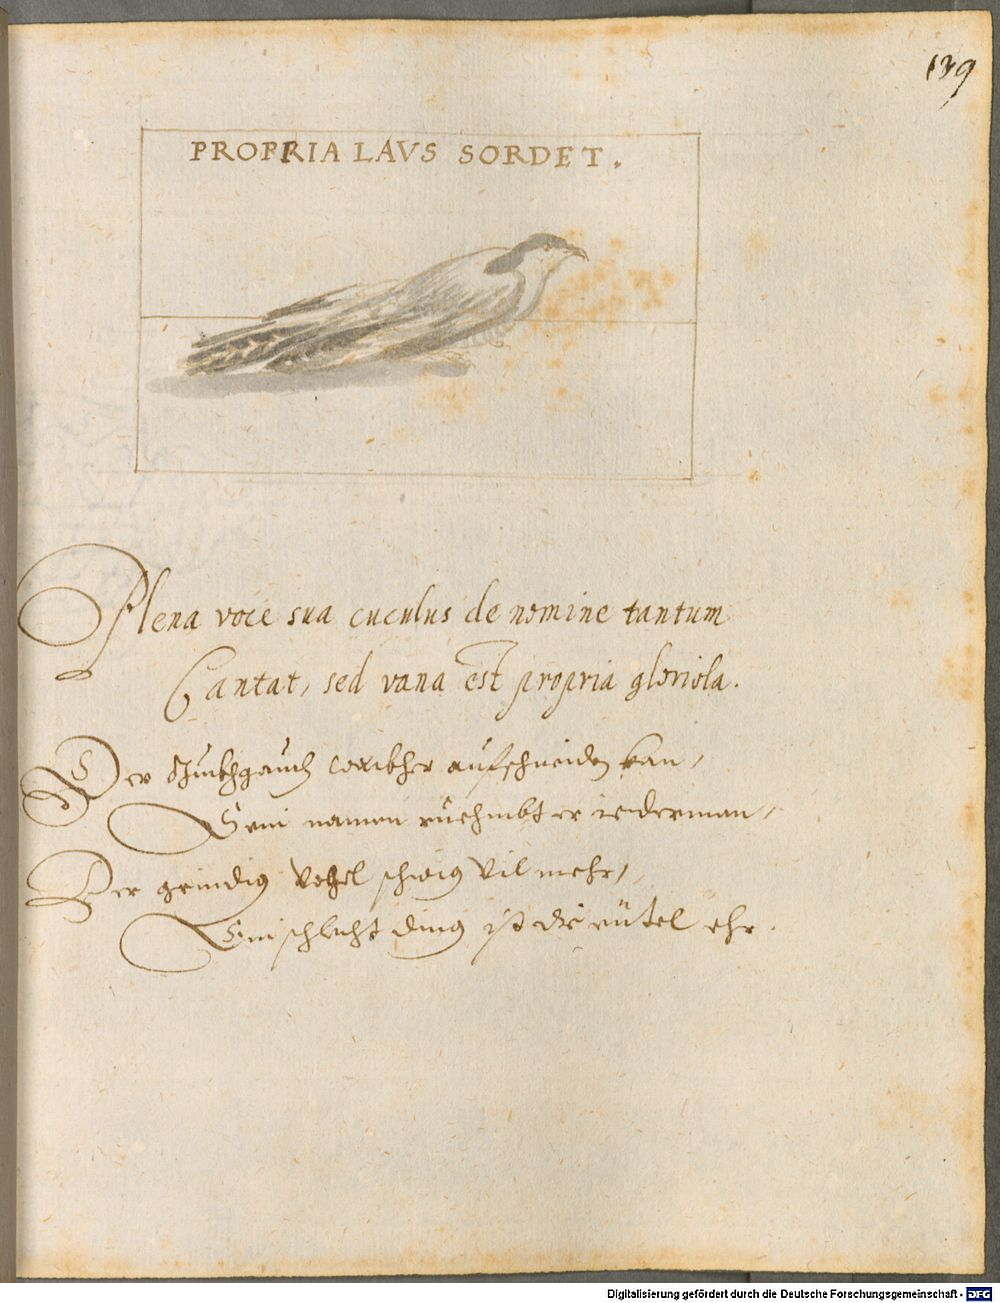 139
PROPRIA LAVS SORDET.
Plena voce sua cuculus de nomine tantum
Cantat, sed vana est propria gloriola.
Der aufschneiden kan,
Sein namen ruehmbt er iederman,
Der grindig Vogel schwig vil mehr,
Ein schlecht ding ist die eütel ehr.
Digitalisierung gefördert durch die Deutsche Forschungsgemeinschaft - DFG